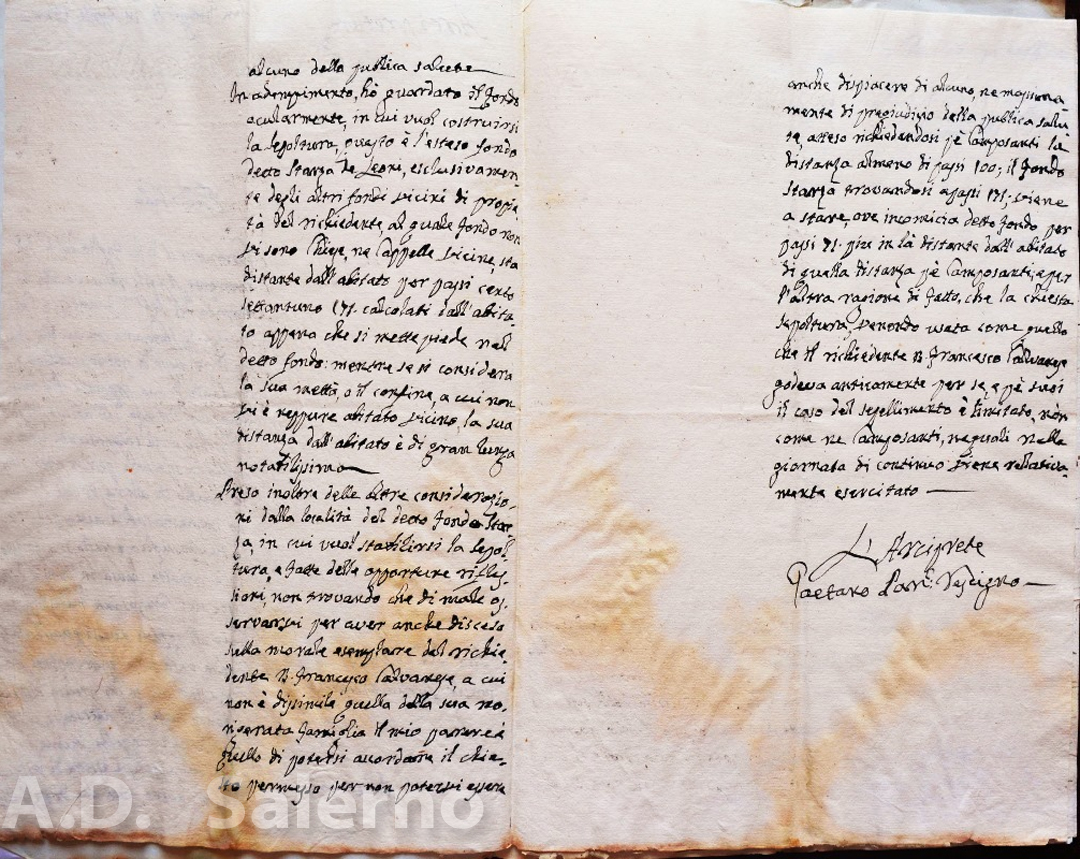 alcuno della publica salute
In adempimento, ho guardato il fondo
ocularmente, in cui vuol costruirsi
la sepoltura, questo è l'esteso fondo
detto Starza de Leoni, esclusivamen-
te degli altri fondi vicini di proprie-
tà del richiedente, al quale fondo non
vi sono Chiese, ne Cappelle vicine, sta
distante dall'abitato per passi cento
settantuno 171. calcolati dall'abita-
to appena che si mette piede nel
detto fondo: mentre se si considera
la sua mettà, o il confine, a cui non
vi è neppure abitato vicino, la sua
distanza dall'abitato è di gran lunga
notabilissima
Preso inoltre delle altre considerazio-
ni dalla località del detto fondo Star-
za, in cui vuol stabilirsi la sepol-
tura, e fatte delle opportune rifles-
sioni, non trovando che di male os-
servarvi per aver anche disceso
sulla morale esemplare del richie-
dente D. Francesco Calvanese, a cui
non è dissimile quella della sua no-
minata famiglia il mio parere è
quello di potersi accordare il chies-
to permesso per non potervi essere
anche dispiacere di alcuno, ne massima
mente di pregiudizio della publica salu
te, atteso richiedendosi pè Camposanti la
distanza almeno di passi 100; il fondo
Starza trovandosi a passi 171; viene
a stare, ove incomicia detto fondo per
passi 71. più in là distante dall'abitato
di quella distanza pè Camposanti, e per
l'altra ragione di fatto, che la chiesta
sepoltura, venendo usata come quello
che il richiedente D. Francesco Calvanese
godeva anticamente per se, e pè suoi
il caso del sepellimento è limitato, non
come ne Camposanti, ne quali nella
giornata di continuo viene rellativa-
mente esercitato
L'Arciprete
Gaetano Vescigno
A.D. Salerno